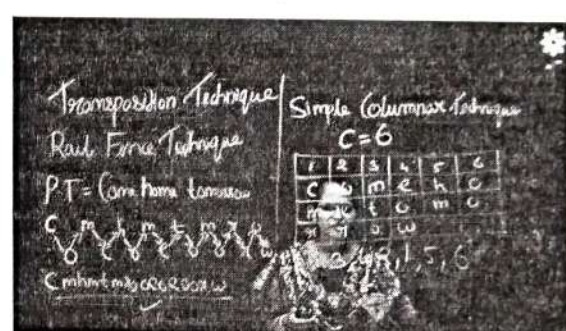 Transposition Technique
Rail Fence Technique
P.T = Come home tomorrow
C m h m t m r o
o e o e o o r w
Simple Columnar Technique
C = 6
1 2 3 4 5 6
C o m e h o
m e t o m o
r r o w
2, 1, 5, 6